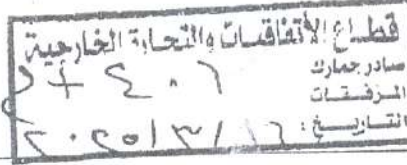 قطاع الأتفاقيات والتجارة الخارجية
صادر جمارك ٤٠٦
المرفقات
التاريخ : ١٦ / ٣ / ٢٠٢٥